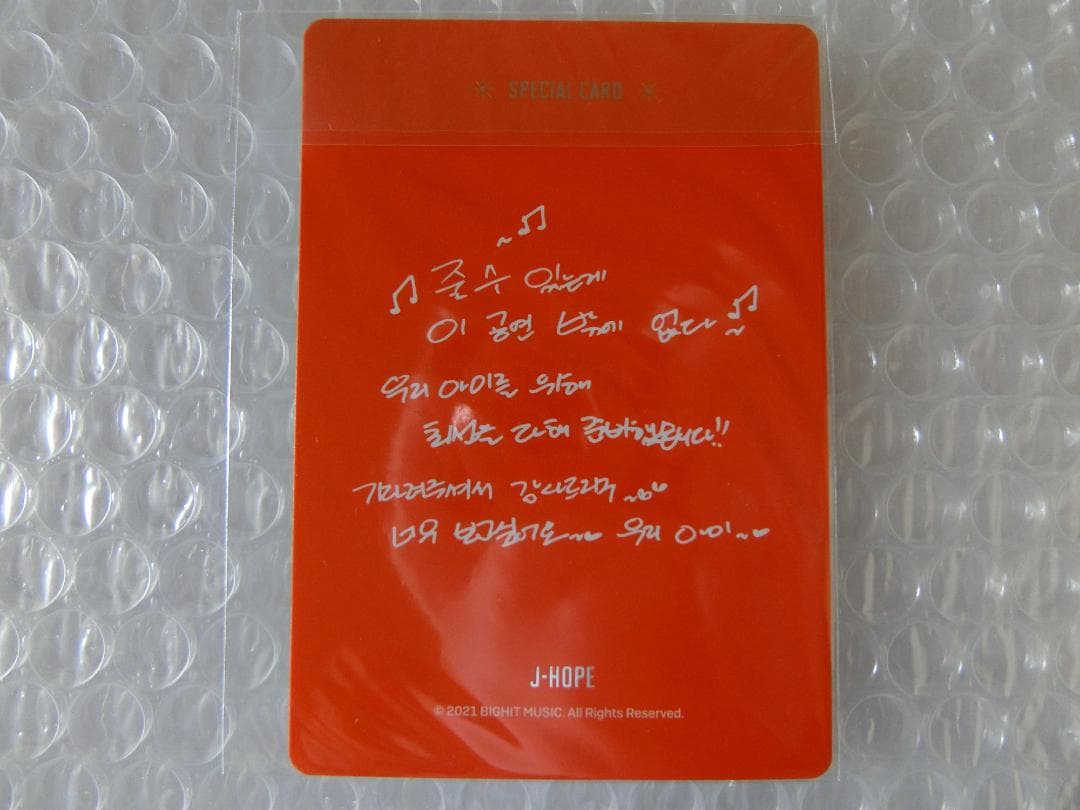 SPECIAL CARD
줄 수 있는게
이 공연 밖에 없다~
우리 아미를 위해
최선을 다해 준비했습니다!!
기다려주셔서 감사드리며~
너무 보고싶어요~ 우리 아미~
J-HOPE
© 2021 BIGHIT MUSIC. All Rights Reserved.